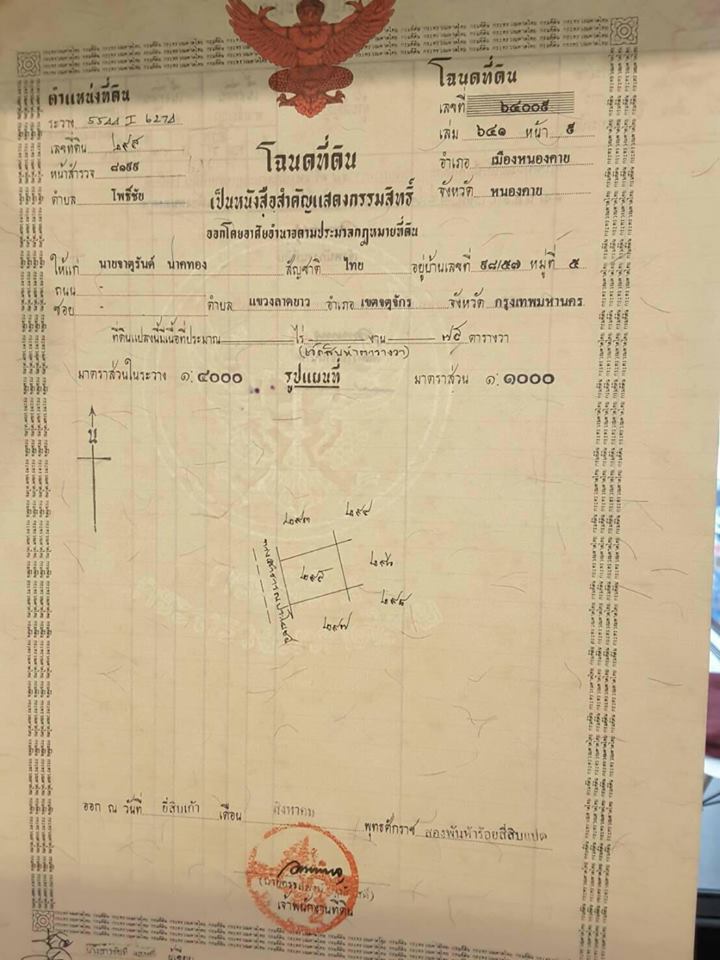 ตำแหน่งที่ดิน
ระวาง 5544 I 6274
เลขที่ดิน ๒๙๕
หน้าสำรวจ ๘๑๙๙
ตำบล โพธิ์ชัย
โฉนดที่ดิน
เลขที่ ๖๔๐๐๕
เล่ม ๖๔๑ หน้า ๕
อำเภอ เมืองหนองคาย
จังหวัด หนองคาย
โฉนดที่ดิน
เป็นหนังสือสำคัญแสดงกรรมสิทธิ์
ออกโดยอาศัยอำนาจตามประมวลกฎหมายที่ดิน
ให้แก่ นายจาตุรันต์ นาคทอง สัญชาติ ไทย อยู่บ้านเลขที่ ๙๘/๕๗ หมู่ที่ ๕
ถนน -
ซอย - ตำบล แขวงลาดยาว อำเภอ เขตจตุจักร จังหวัด กรุงเทพมหานคร
ที่ดินแปลงนี้มีเนื้อที่ประมาณ ไร่ งาน ๗๕ ตารางวา
(เจ็ดสิบห้าตารางวา)
มาตราส่วนในระวาง ๑:๔๐๐๐ รูปแผนที่ มาตราส่วน ๑:๑๐๐๐
น
๒๙๓ ๒๙๔
๒๙๕ ๒๙๖
๒๙๘
๒๙๗
ออก ณ วันที่ ยี่สิบเก้า เดือน สิงหาคม พุทธศักราช สองพันห้าร้อยสี่สิบแปด
เจ้าพนักงานที่ดิน